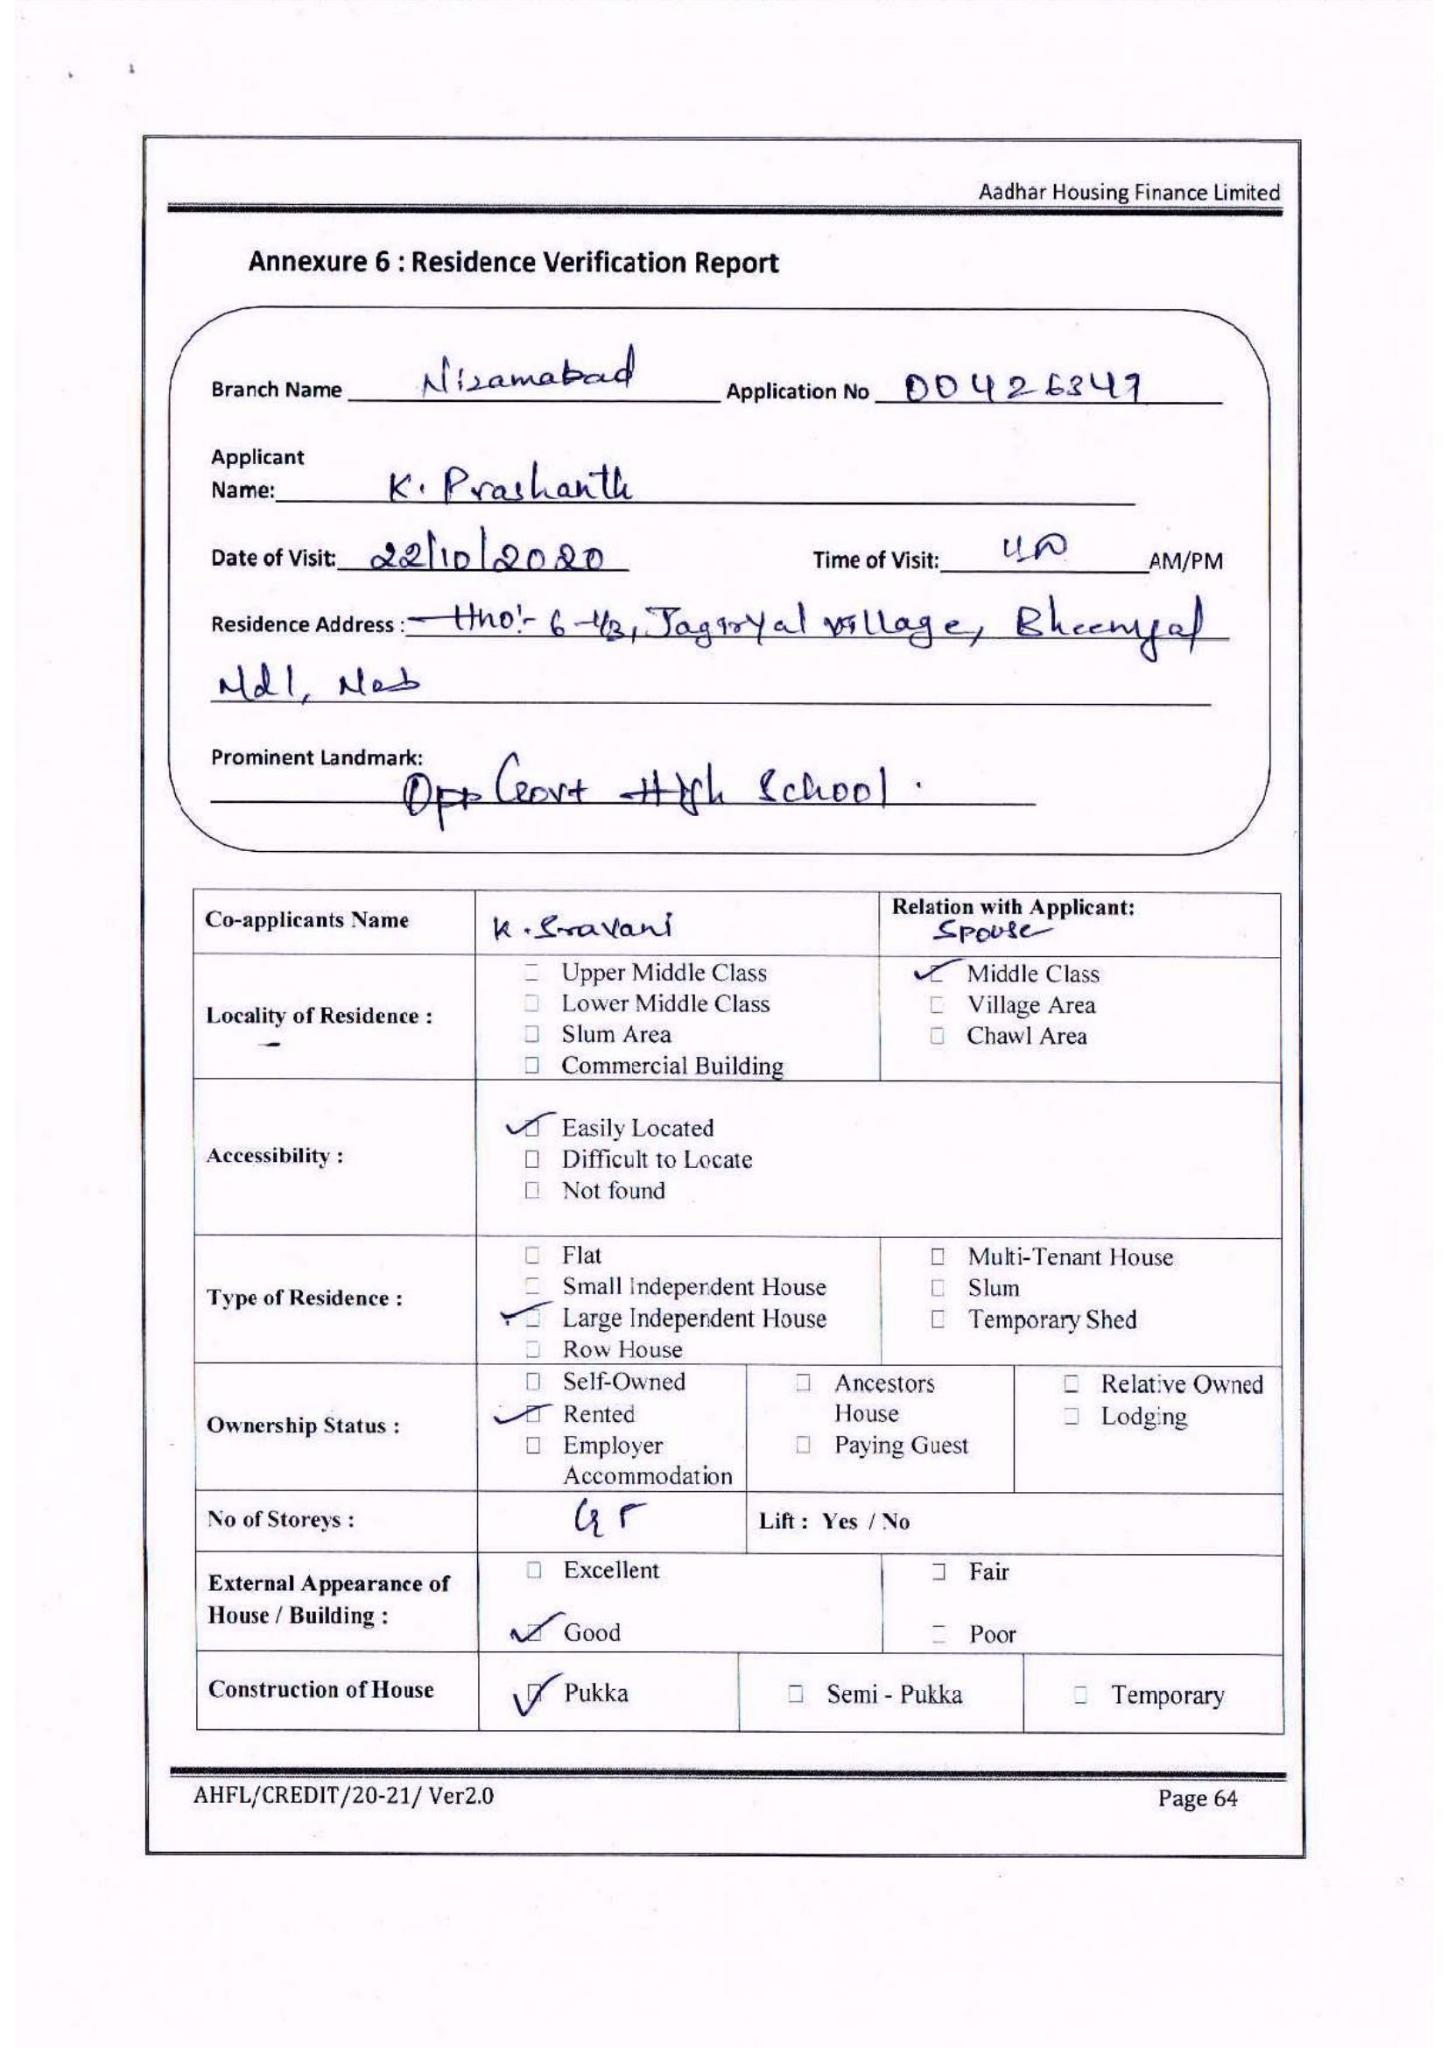 Aadhar Housing Finance Limited
Annexure 6 : Residence Verification Report
Branch Name Nizamabad Application No 00426347
Applicant
Name: K. Prashanth
Date of Visit: 22/10/2020 Time of Visit: AM/PM
Residence Address : Hno:- 6-1/3, Jagiryal village, Bheemgal
Mdl, Nzb
Prominent Landmark:
Opp Govt High School.
Co-applicants Name K. Sravani Relation with Applicant:
Spouse
Locality of Residence :
Upper Middle Class Middle Class
Lower Middle Class Village Area
Slum Area Chawl Area
Commercial Building
Accessibility :
Easily Located
Difficult to Locate
Not found
Type of Residence :
Flat Multi-Tenant House
Small Independent House Slum
Large Independent House Temporary Shed
Row House
Ownership Status :
Self-Owned Ancestors Relative Owned
Rented House Lodging
Employer Paying Guest
Accommodation
No of Storeys : GF Lift : Yes / No
External Appearance of
House / Building :
Excellent Fair
Good Poor
Construction of House Pukka Semi - Pukka Temporary
AHFL/CREDIT/20-21/ Ver2.0 Page 64